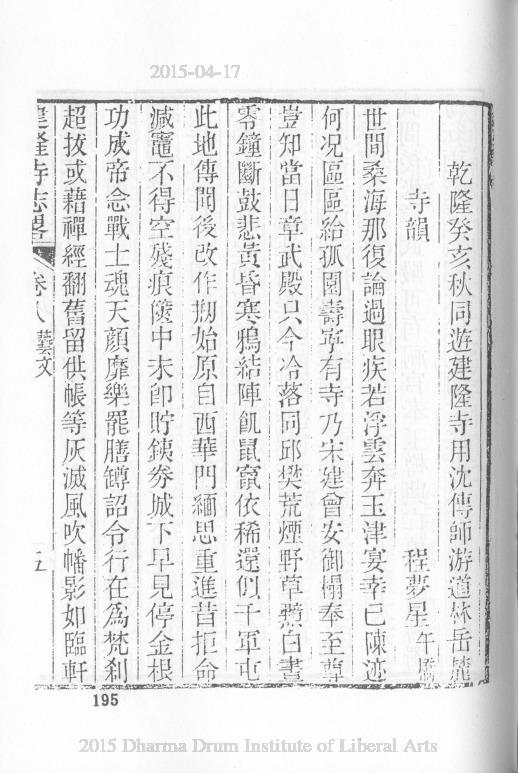 2015-04-17
乾隆癸亥秋同遊建隆寺用沈傳師游道林岳麓
寺韻
程夢星 午橋
世間桑海那復論過眼疾若浮雲奔玉津宴幸已陳迹
何况區區給孤園壽寧有寺乃宋建曾安御榻奉至尊
豈知當日章武殿只今冷落同邱樊荒煙野草翳白晝
零鐘斷鼓悲黃昏寒鴉結陣飢鼠竄依稀還似千軍屯
此地傳聞後改作刱始原自西華門緬思重進昔拒命
減竈不得空殘痕隆中未卽貯鐵券城下早見停金根
功成帝念戰士魂天顏靡樂罷膳罇詔令行在為梵刹
超拔或藉禪經翻舊留供帳等灰滅風吹幡影如臨軒
建隆寺志畧 卷八 藝文 五
195
2015 Dharma Drum Institute of Liberal Arts